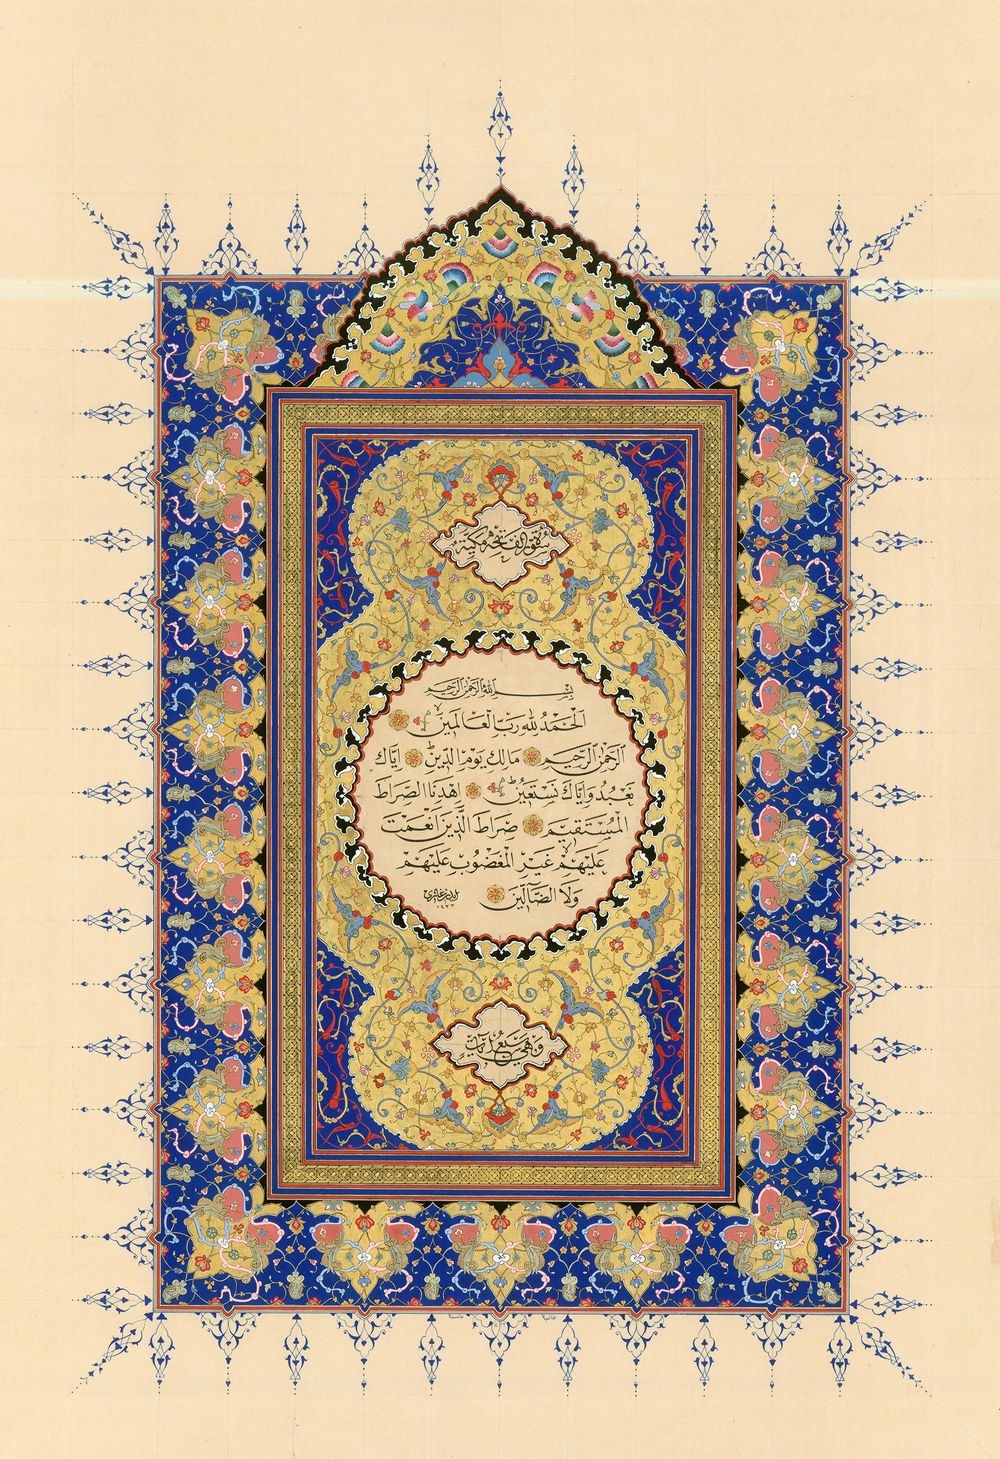 سورة الفاتحة مكية
بسم الله الرحمن الرحيم
الحمد لله رب العالمين
الرحمن الرحيم مالك يوم الدين إياك
نعبد وإياك نستعين اهدنا الصراط
المستقيم صراط الذين أنعمت
عليهم غير المغضوب عليهم
ولا الضالين
وهي سبع آيات